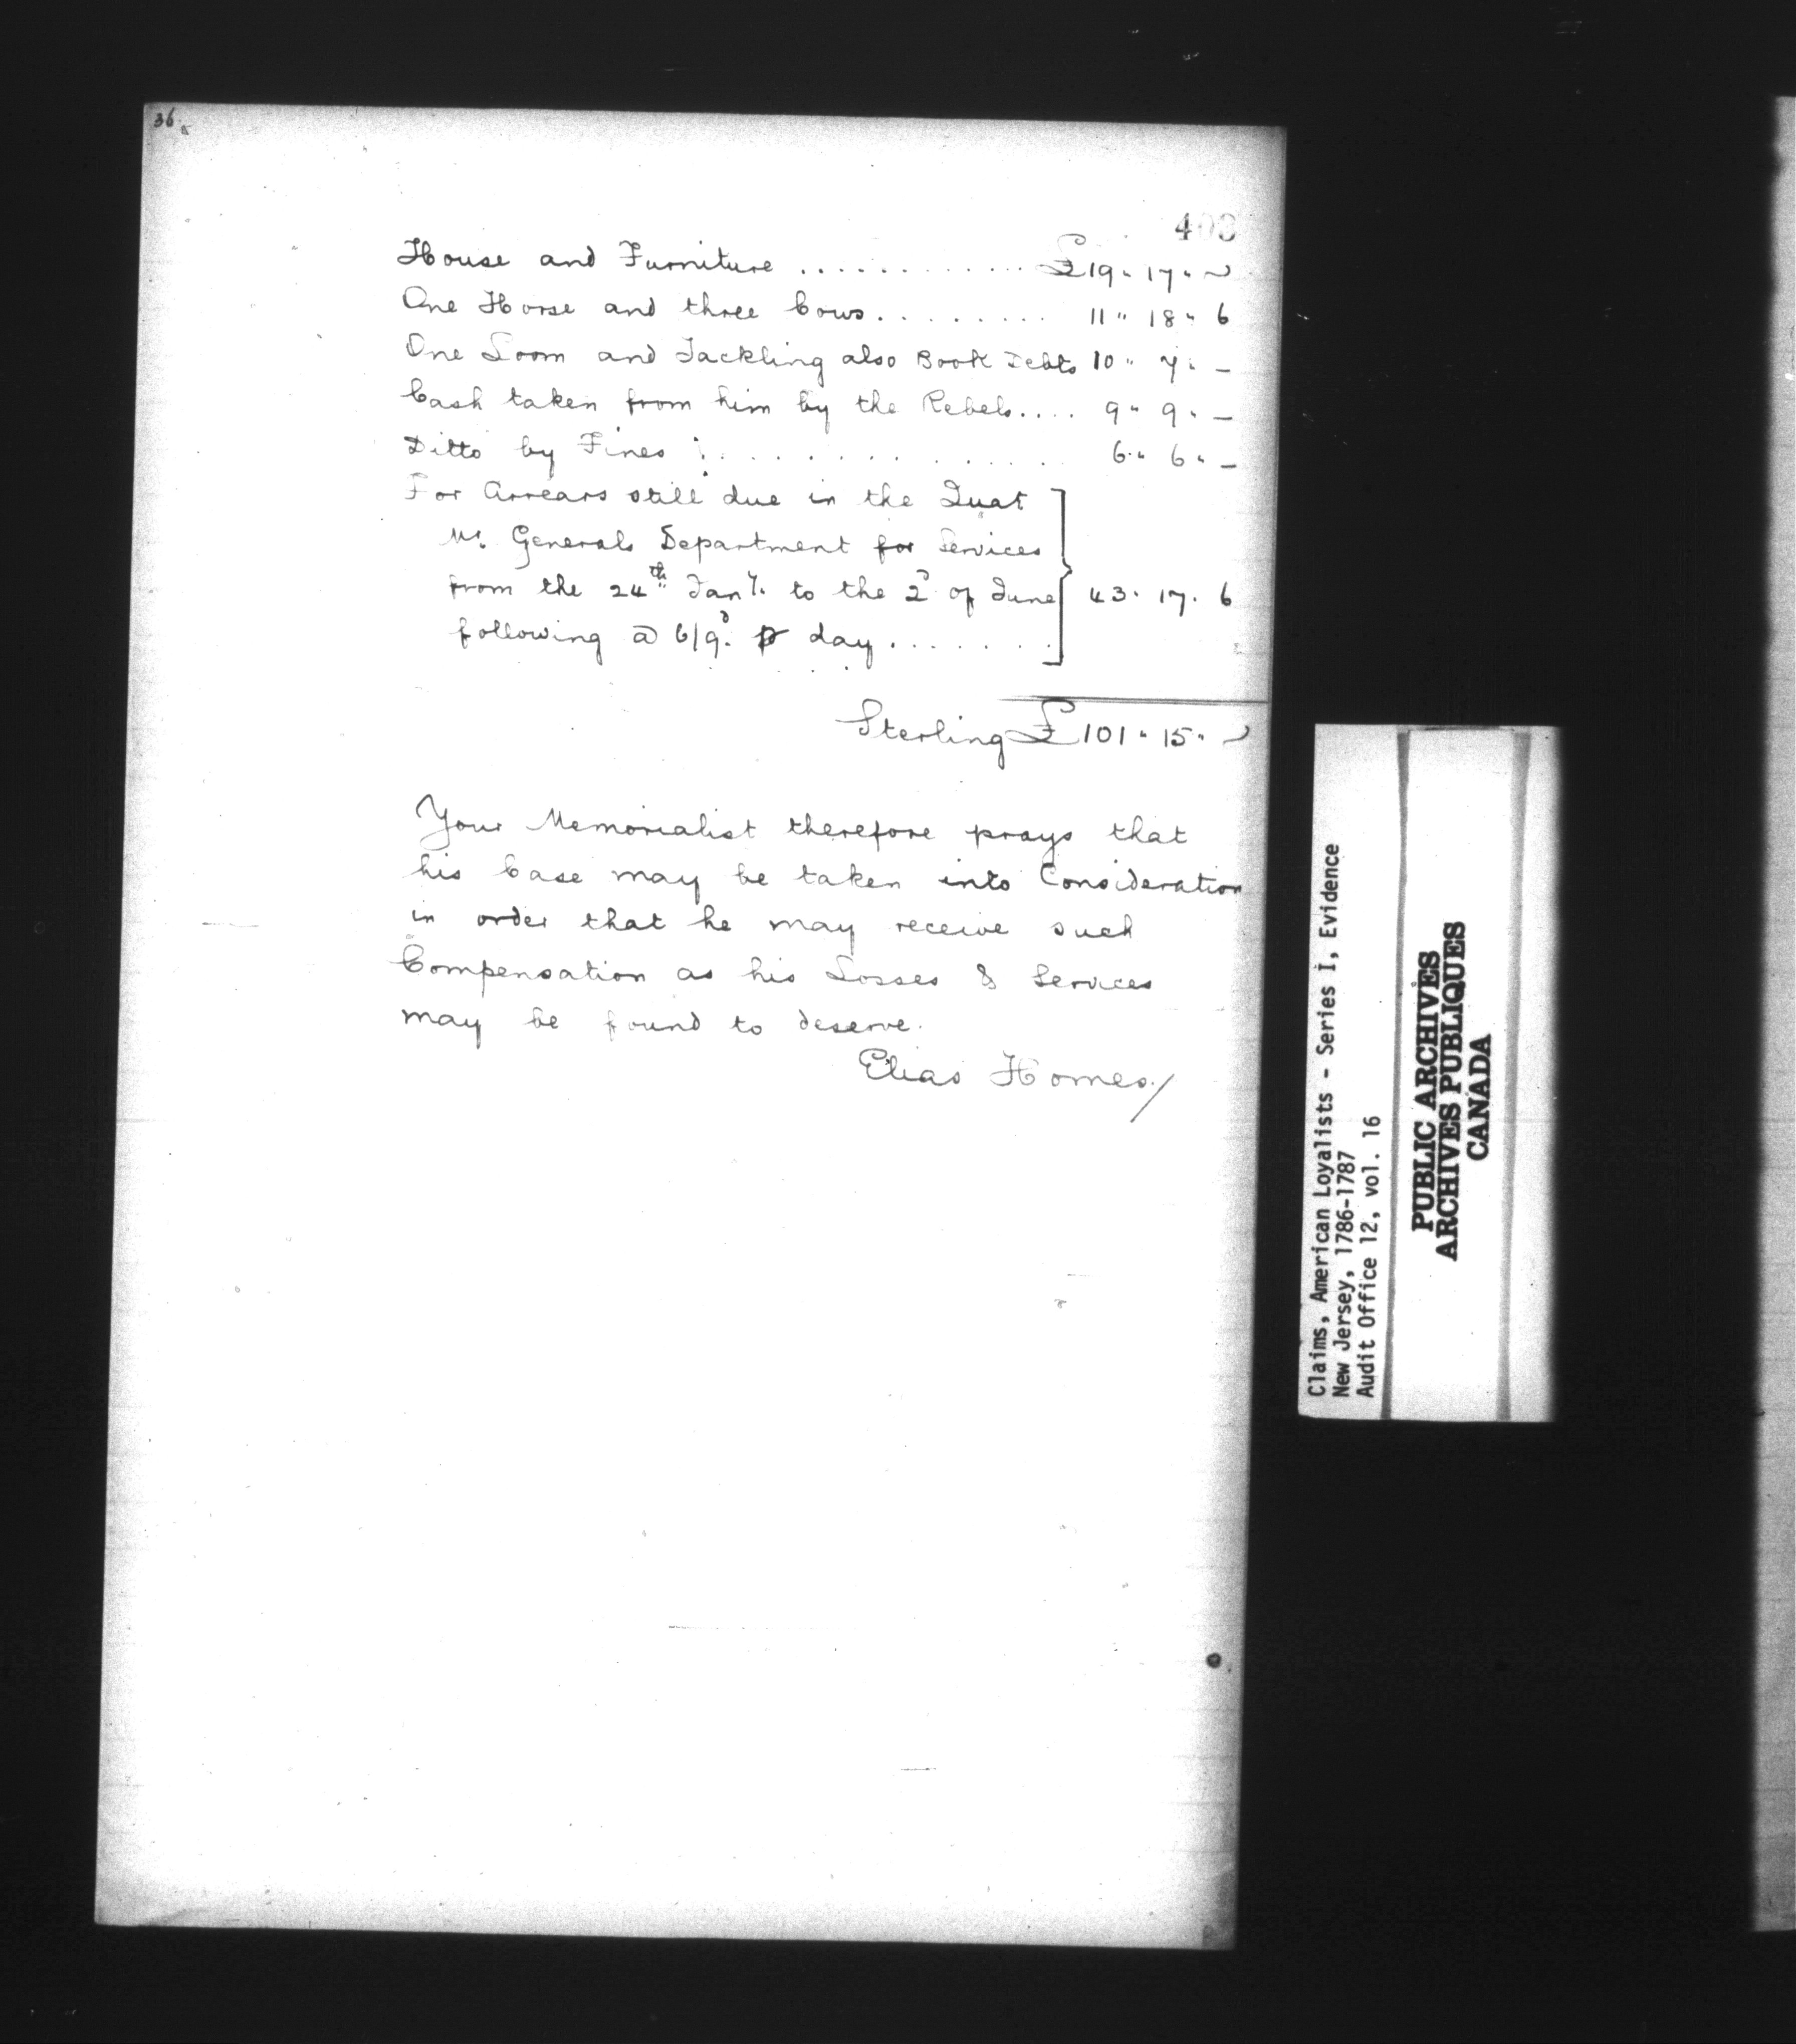 36
403
House and Furniture ............ £19" 17" ~
One Horse and three Cows......... 11" 18" 6
One Loom and Tackling also Book Debts 10" 7" –
Cash taken from him by the Rebels.... 9" 9" –
Ditto by Fines ............... 6" 6" –
For Arrears still due in the Quat
Mr. Generals Department for Services
from the 24th Jany. to the 2d of June 43. 17. 6
following @ 6/9d. p day .......
Sterling £101" 15" ~
Your Memorialist therefore prays that
his Case may be taken into Consideration
in order that he may receive such
Compensation as his Losses & Services
may be found to deserve.
Elias Homes./
Claims, American Loyalists - Series I, Evidence
New Jersey, 1786-1787
Audit Office 12, vol. 16
PUBLIC ARCHIVES
ARCHIVES PUBLIQUES
CANADA